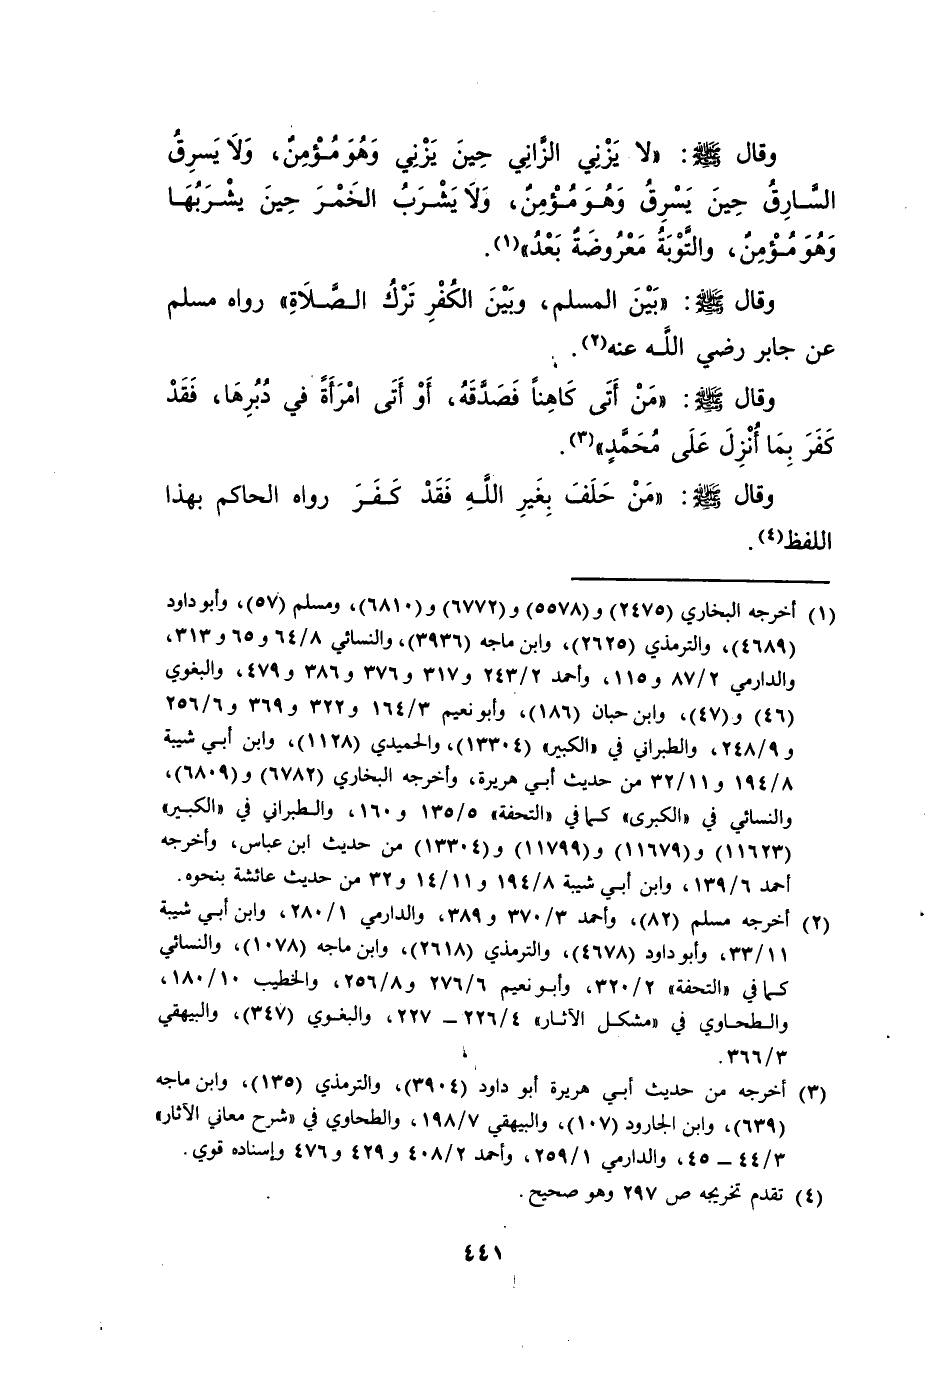 وقال ﷺ: «لا يَزْنِي الزَّانِي حِينَ يَزْنِي وَهُوَ مُؤْمِنٌ، وَلَا يَسرِقُ
السَّارِقُ حِينَ يَسْرِقُ وَهُوَ مُؤْمِنٌ، وَلَا يَشْرَبُ الخَمْرَ حِينَ يشْرَبُهَا
وَهُوَ مُؤْمِنٌ، والتَّوْبَةُ مَعْرُوضَةٌ بَعْدُ»(١).
وقال ﷺ: «بَيْنَ المسلم، وبَيْنَ الكُفْرِ تَرْكُ الصَّلَاةِ» رواه مسلم
عن جابر رضي اللَّه عنه(٢).
وقال ﷺ: «مَنْ أَتَى كَاهِناً فَصَدَّقَهُ، أَوْ أَتَى امْرَأَةً في دُبُرِهَا، فَقَدْ
كَفَرَ بِمَا أُنْزِلَ عَلَى مُحَمَّدٍ»(٣).
وقال ﷺ: «مَنْ حَلَفَ بِغَيرِ اللَّهِ فَقَدْ كَفَرَ رواه الحاكم بهذا
اللفظ(٤).
(١) أخرجه البخاري (٢٤٧٥) و(٥٥٧٨) و(٦٧٧٢) و(٦٨١٠)، ومسلم (٥٧)، وأبو داود
(٤٦٨٩)، والترمذي (٢٦٢٥)، وابن ماجه (٣٩٣٦)، والنسائي ٦٤/٨ و٦٥ و٣١٣،
والدارمي ٨٧/٢ و١١٥، وأحمد ٢٤٣/٢ و٣١٧ و٣٧٦ و٣٨٦ و٤٧٩، والبغوي
(٤٦) و(٤٧)، وابن حبان (١٨٦)، وأبو نعيم ١٦٤/٣ و٣٢٢ و٣٦٩ و٢٥٦/٦
و٢٤٨/٩، والطبراني في «الكبير» (١٣٣٠٤)، والحميدي (١١٢٨)، وابن أبي شيبة
١٩٤/٨ و٣٢/١١ من حديث أبي هريرة، وأخرجه البخاري (٦٧٨٢) و(٦٨٠٩)،
والنسائي في «الكبرى» كما في «التحفة» ١٣٥/٥ و١٦٠، والطبراني في «الكبير»
(١١٦٢٣) و(١١٦٧٩) و(١١٧٩٩) و(١٣٣٠٤) من حديث ابن عباس، وأخرجه
أحمد ١٣٩/٦، وابن أبي شيبة ١٩٤/٨ و١٤/١١ و٣٢ من حديث عائشة بنحوه.
(٢) أخرجه مسلم (٨٢)، وأحمد ٣٧٠/٣ و٣٨٩، والدارمي ٢٨٠/١، وابن أبي شيبة
٣٣/١١، وأبو داود (٤٦٧٨)، والترمذي (٢٦١٨)، وابن ماجه (١٠٧٨)، والنسائي
كما في «التحفة» ٣٢٠/٢، وأبو نعيم ٢٧٦/٦ و٢٥٦/٨، والخطيب ١٨٠/١٠،
والطحاوي في «مشكل الآثار» ٢٢٦/٤ ــ ٢٢٧، والبغوي (٣٤٧)، والبيهقي
٣٦٦/٣.
(٣) أخرجه من حديث أبي هريرة أبو داود (٣٩٠٤)، والترمذي (١٣٥)، وابن ماجه
(٦٣٩)، وابن الجارود (١٠٧)، والبيهقي ١٩٨/٧، والطحاوي في «شرح معاني الآثار»
٤٤/٣ ــ ٤٥، والدارمي ٢٥٩/١، وأحمد ٤٠٨/٢ و٤٢٩ و٤٧٦ وإسناده قوي.
(٤) تقدم تخريجه ص ٢٩٧ وهو صحيح.
٤٤١